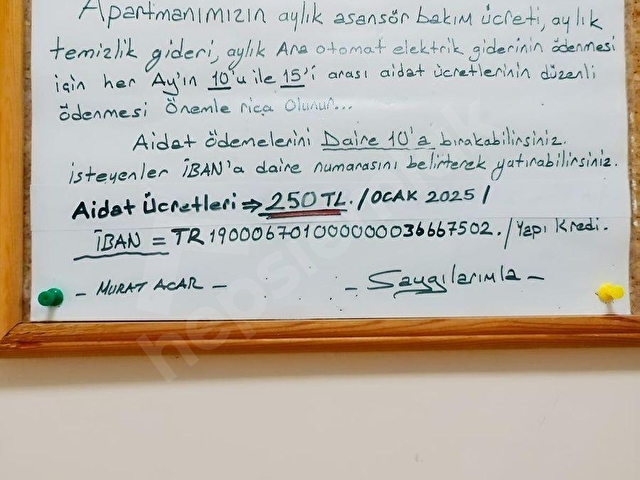 Apartmanımızın aylık asansör bakım ücreti, aylık
temizlik gideri, aylık Ana otomat elektrik giderinin ödenmesi
için her Ay'ın 10'u ile 15'i arası aidat ücretlerinin düzenli
ödenmesi Önemle rica Olunur...
Aidat ödemelerini Daire 10'a bırakabilirsiniz.
isteyenler İBAN'a daire numarasını belirterek yatırabilirsiniz.
Aidat Ücretleri ⇒ 250 TL. / OCAK 2025 /
İBAN = TR190006701000000036667502. / Yapı Kredi.
- MURAT ACAR -
- Saygılarımla -